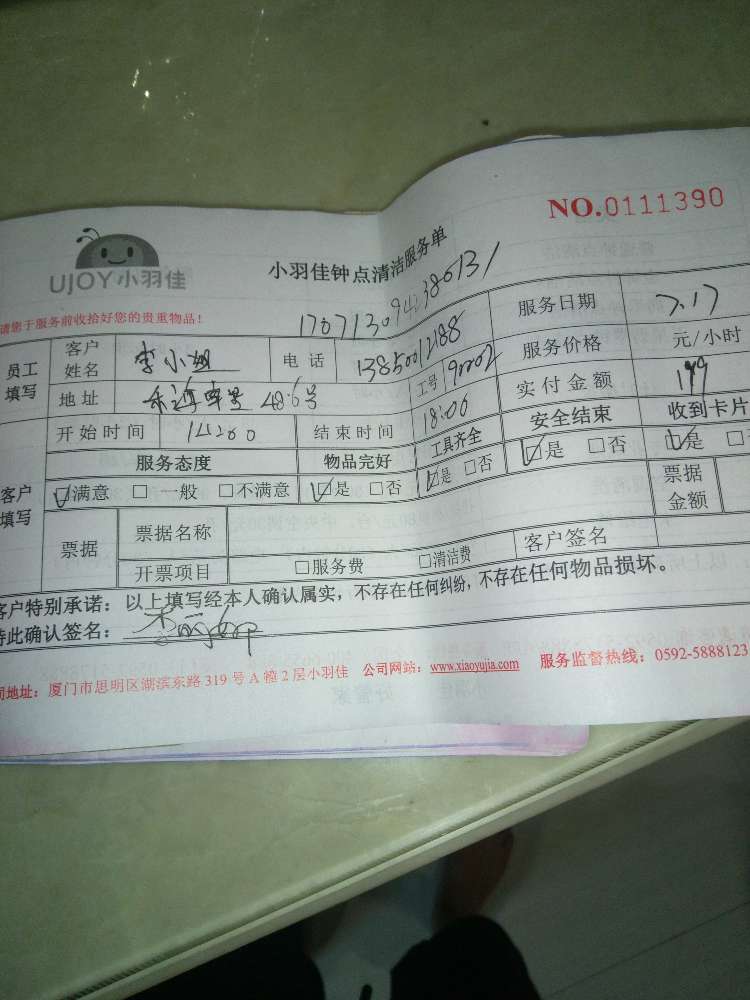 NO.0111390
UJOY小羽佳
小羽佳钟点清洁服务单
请您于服务前收拾好您的贵重物品!
员工填写 客户姓名 李小姐 电话 13850012188 服务日期 7.17
工号 服务价格 元/小时
地址 486号 实付金额 199
客户填写 开始时间 结束时间 18:00 工具齐全 安全结束 收到卡片
服务态度 物品完好 是 否 是 否 是
满意 一般 不满意 是 否
票据 票据名称 票据金额
开票项目 服务费 清洁费 客户签名
客户特别承诺:以上填写经本人确认属实,不存在任何纠纷,不存在任何物品损坏。
特此确认签名:
司地址:厦门市思明区湖滨东路319号A幢2层小羽佳 公司网站:www.xiaoyujia.com 服务监督热线:0592-5888123